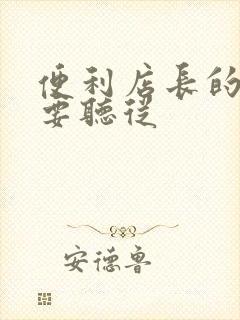 便利店長的
要聽從
安德魯